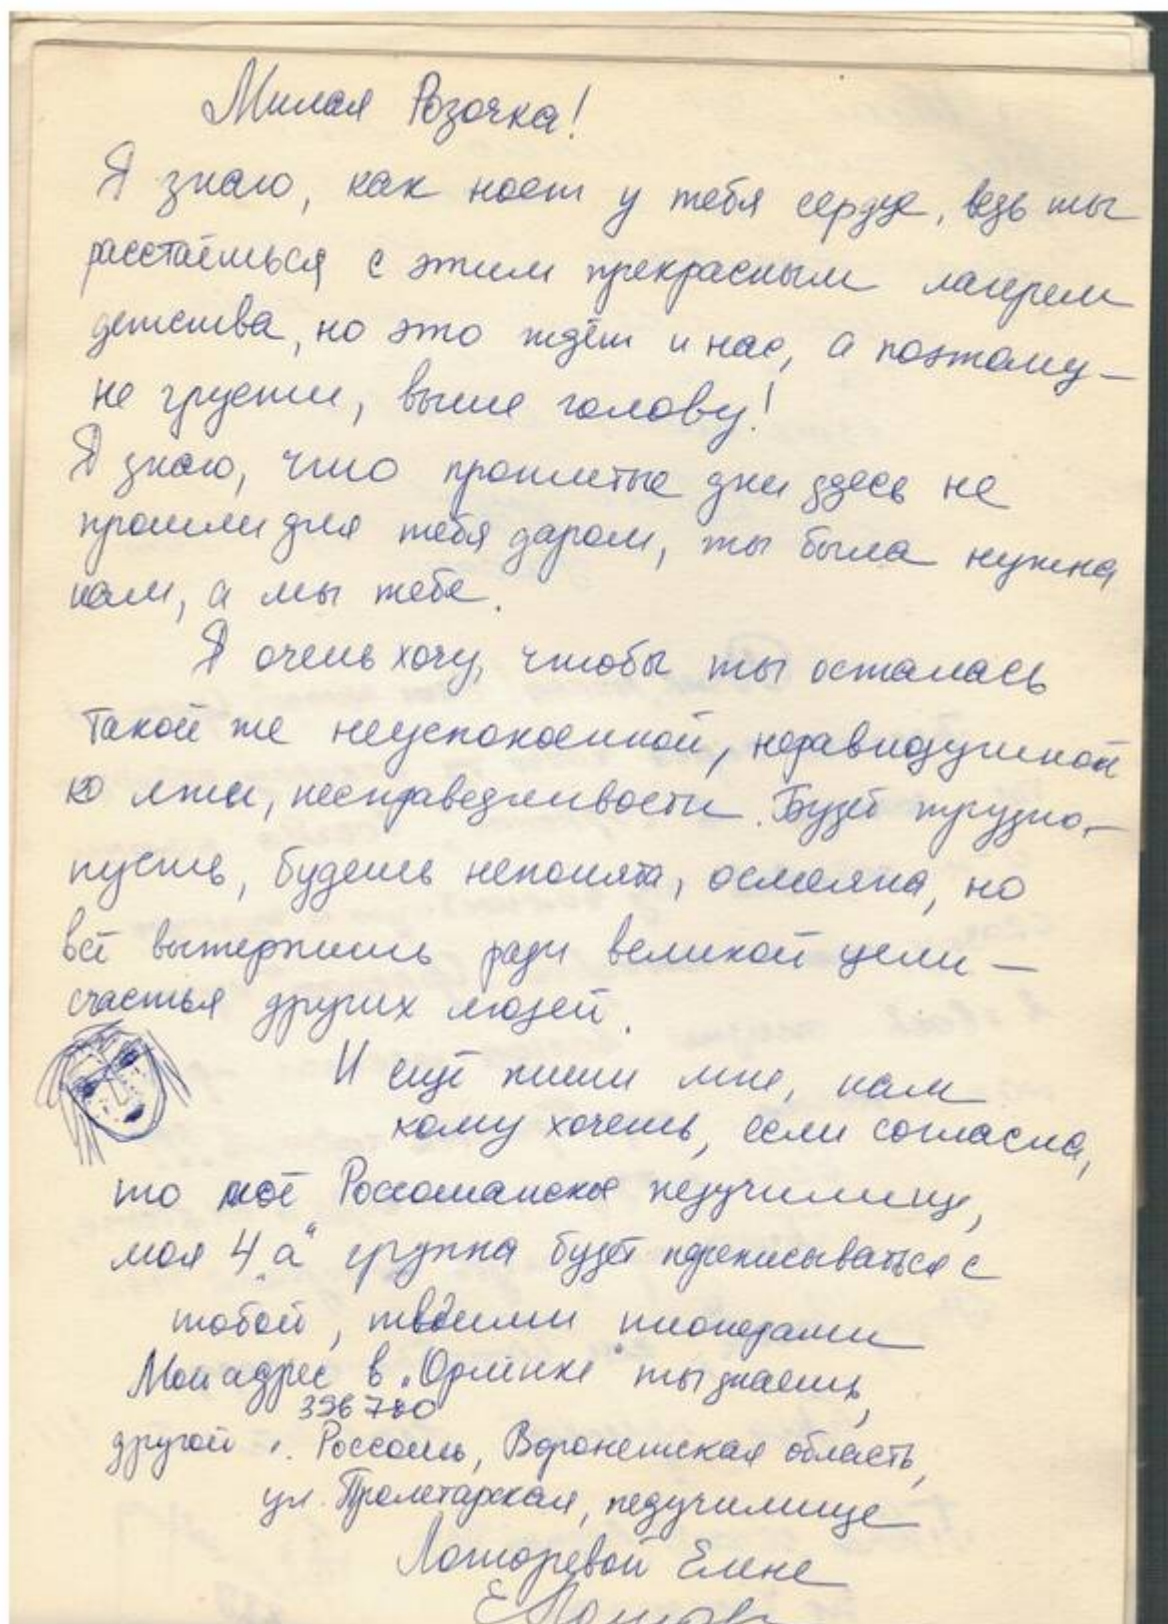 Милая Розочка!
Я знаю, как ноет у тебя сердце, ведь ты
расстаёшься с этим прекрасным лагерем
детства, но это ждёт и нас, а поэтому –
не грусти, выше голову!
Я знаю, что прожитые дни здесь не
прошли для тебя даром, ты была нужна
нам, а мы тебе.
Я очень хочу, чтобы ты осталась
такой же неуспокоенной, неравнодушной
ко лжи, несправедливости. Будет трудно, –
пусть, будешь непонята, осмеяна, но
всё вытерпишь ради великой цели –
счастья других людей.
И ещё пиши мне, нам
кому хочешь, если согласна,
то моё Россошанское педучилище,
моя 4 „а“ группа будет переписываться с
тобой, твоими пионерами
Мой адрес в „Орлёнке“ ты знаешь,
396740
другой г. Россошь, Воронежская область,
ул. Пролетарская, педучилище
Елене